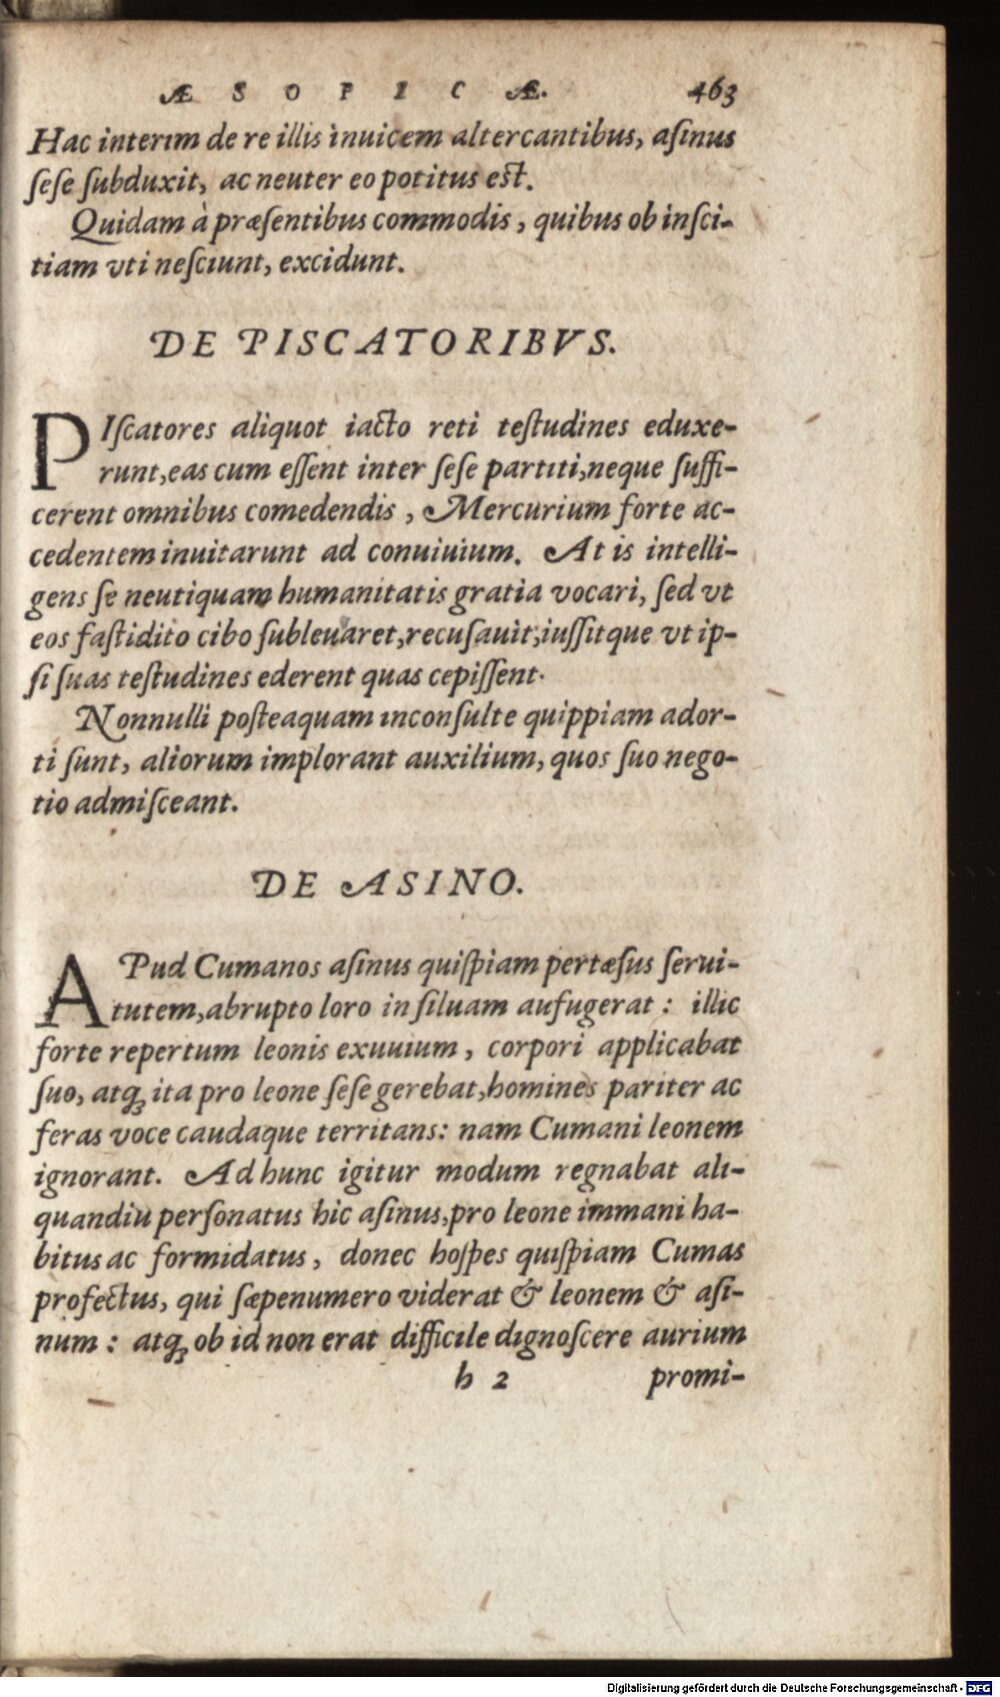 ÆSOPICÆ. 463
Hac interim de re illis inuicem altercantibus, aſinus
ſeſe ſubduxit, ac neuter eo potitus eſt.
Quidam à præſentibus commodis, quibus ob inſci-
tiam vti neſciunt, excidunt.
DE PISCATORIBVS.
PIſcatores aliquot iacto reti teſtudines eduxe-
runt, eas cum eſſent inter ſeſe partiti, neque ſuffi-
cerent omnibus comedendis, Mercurium forte ac-
cedentem inuitarunt ad conuiuium. At is intelli-
gens ſe neutiquam humanitatis gratia vocari, ſed vt
eos faſtidito cibo ſubleuaret, recuſauit, iuſſitque vt ip-
ſi ſuas teſtudines ederent quas cepiſſent.
Nonnulli poſteaquam inconſulte quippiam ador-
ti ſunt, aliorum implorant auxilium, quos ſuo nego-
tio admiſceant.
DE ASINO.
APud Cumanos aſinus quiſpiam pertæſus ſerui-
tutem, abrupto loro in ſiluam aufugerat: illic
forte repertum leonis exuuium, corpori applicabat
ſuo, atqꝫ ita pro leone ſeſe gerebat, homines pariter ac
feras voce caudaque territans: nam Cumani leonem
ignorant. Ad hunc igitur modum regnabat ali-
quandiu perſonatus hic aſinus, pro leone immani ha-
bitus ac formidatus, donec hoſpes quiſpiam Cumas
profectus, qui ſæpenumero viderat & leonem & aſi-
num: atqꝫ ob id non erat difficile dignoſcere aurium
h 2 promi-
Digitalisierung gefördert durch die Deutsche Forschungsgemeinschaft - DFG